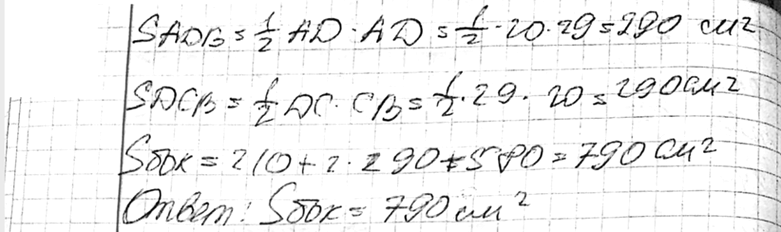 SADB = 1/2 AD · AD = 1/2 · 20 · 29 = 290 см²
SDCB = 1/2 DC · CB = 1/2 · 29 · 20 = 290 см²
Sбок = 210 + 2 · 290 + 580 = 790 см²
Ответ: Sбок = 790 см²